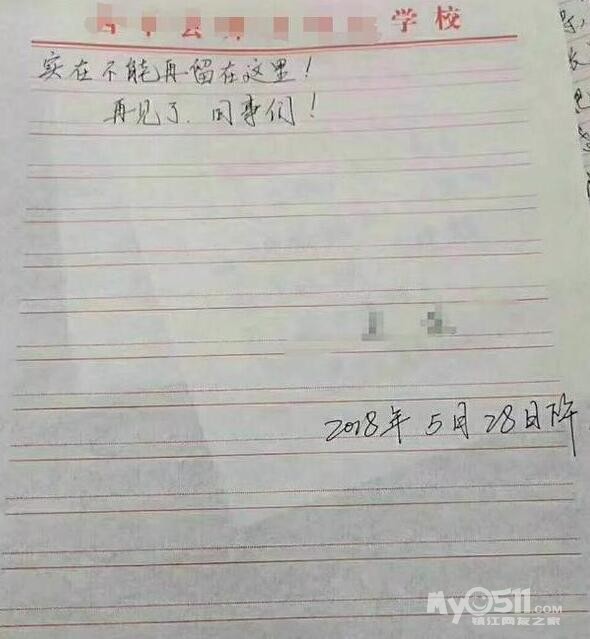 学校
实在不能再留在这里！
再见了．同事们！
2018年5月28日下午
My0511.com
镇江网友之家